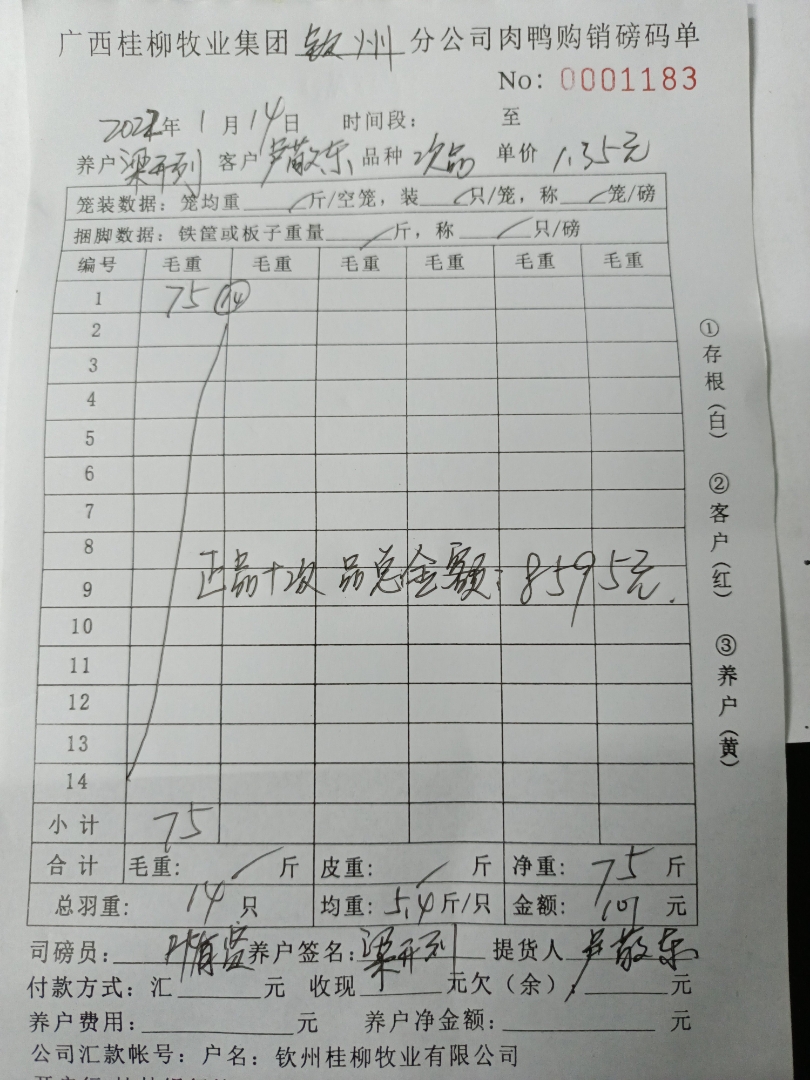 广西桂柳牧业集团 钦州 分公司肉鸭购销磅码单
No: 0001183
2022年 1月 14日 时间段: 至
养户 梁开列 客户 芦敬东 品种 次品 单价 1.35元
笼装数据: 笼均重 / 斤/空笼, 装 / 只/笼, 称 / 笼/磅
捆脚数据: 铁筐或板子重量 / 斤, 称 / 只/磅
编号 毛重 毛重 毛重 毛重 毛重 毛重
1 75 14
2
3
4
5
6
7
8
正品+次品总金额: 8595元.
9
10
11
12
13
14
小计 75
合计 毛重: / 斤 皮重: / 斤 净重: 75 斤
总羽重: 14 只 均重: 5.4 斤/只 金额: 101 元
司磅员: 养户签名: 梁开列 提货人 芦敬东
付款方式: 汇 元 收现 元欠(余) 元
养户费用: 元 养户净金额: 元
公司汇款帐号: 户名: 钦州桂柳牧业有限公司
①存根(白) ②客户(红) ③养户(黄)